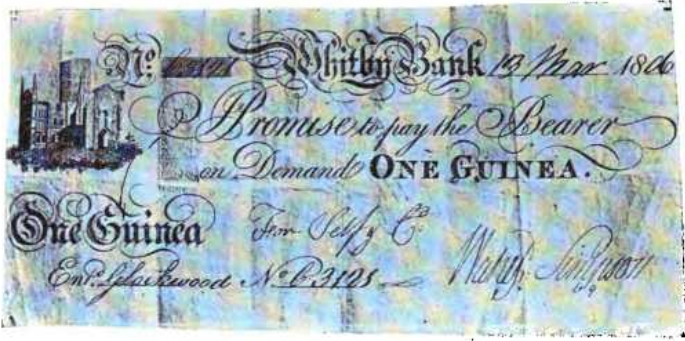 Nº Whitby Bank 13 Mar 1806
I Promise to pay the Bearer
on Demand ONE GUINEA.
One Guinea For Self & Cº
Entd Nº 63121 Simpson